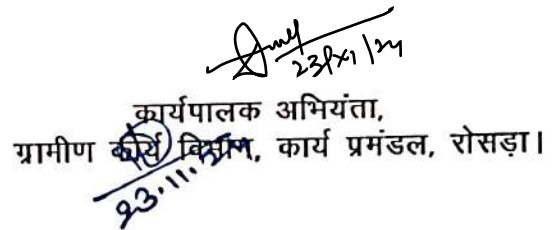 23/XI/24
कार्यपालक अभियंता,
ग्रामीण कार्य विभाग, कार्य प्रमंडल, रोसड़ा।
23.11.24